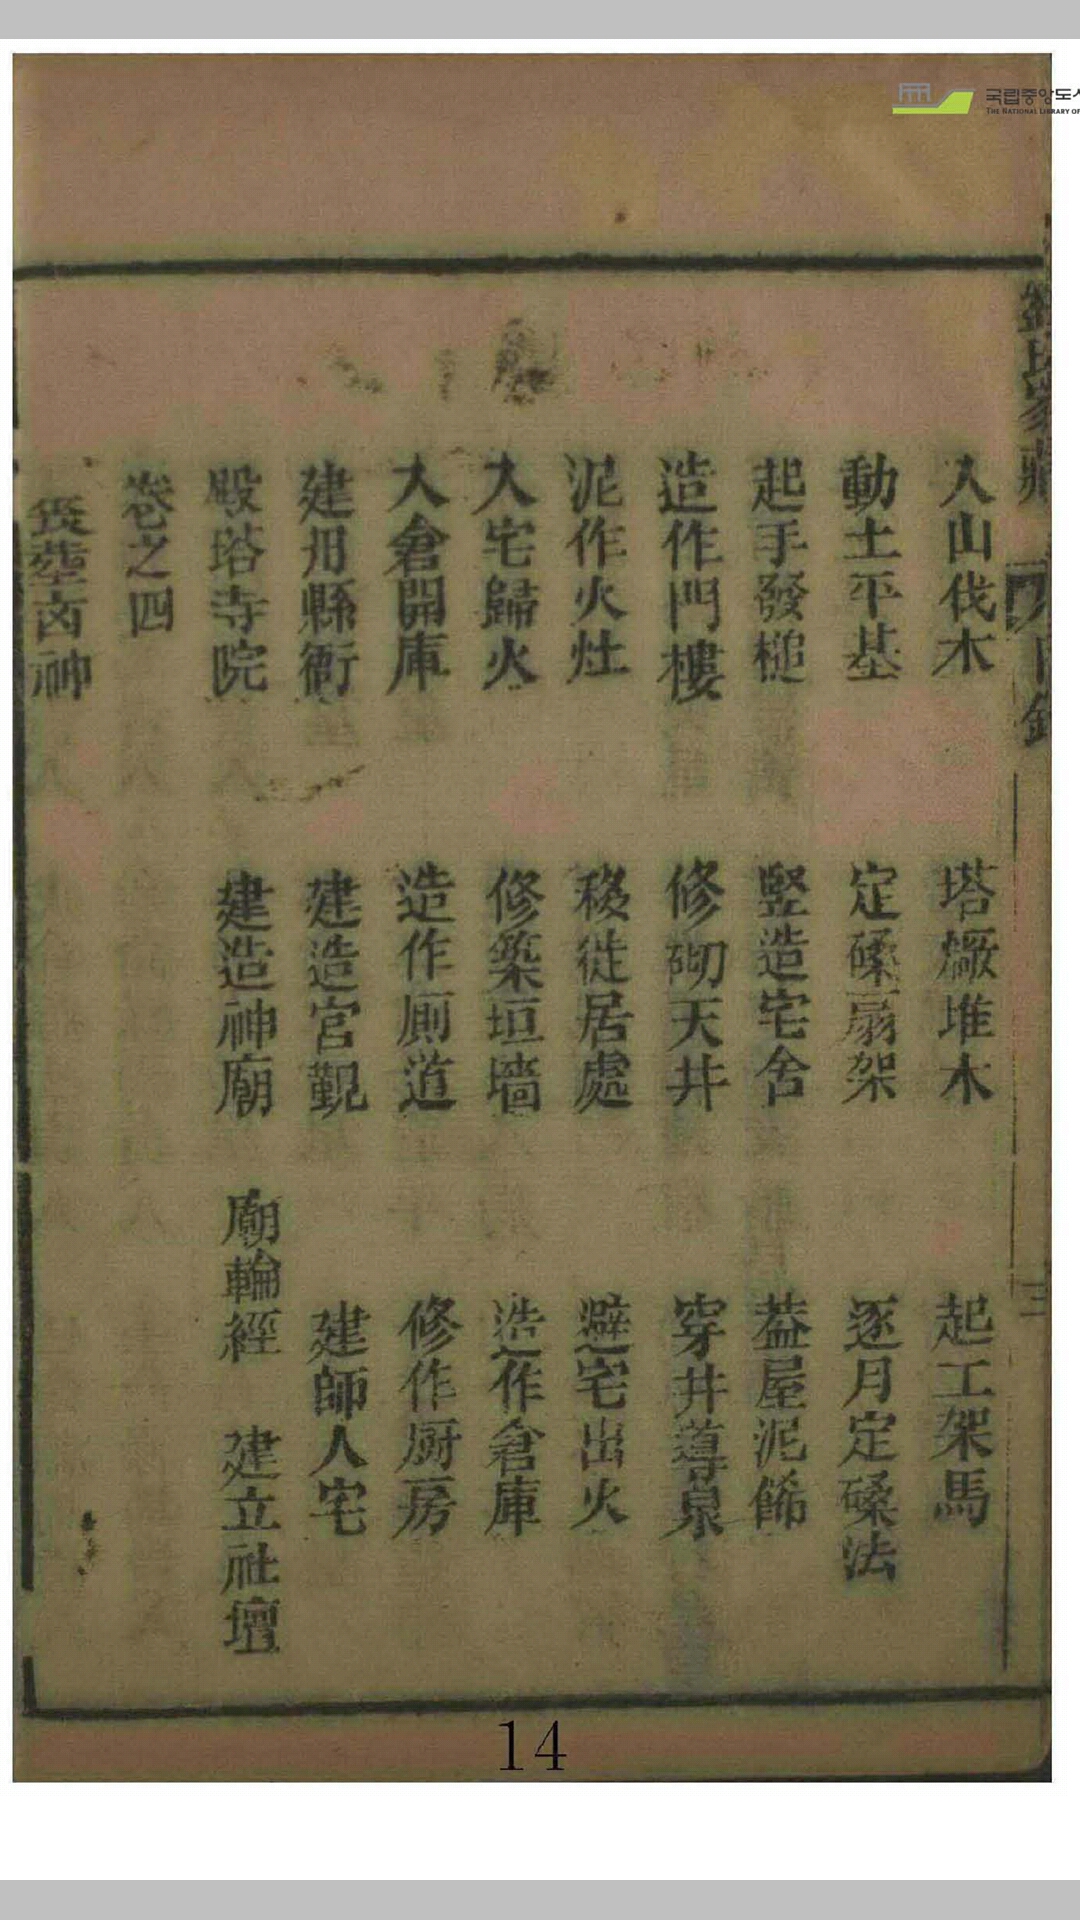 국립중앙도서
THE NATIONAL LIBRARY OF
入山伐木 塔𪹳堆木 起工架馬
動土平基 定磉扇架 逐月定磉法
起手發槌 竪造宅舍 葢屋泥餙
造作門樓 修砌天井 穿井導泉
泥作火灶 移徙居處 避宅出火
入宅歸火 修築垣墻 造作倉庫
入倉開庫 造作厠道 修作厨房
建州縣衙 建造宫觀 建師人宅
殿塔寺院 建造神廟 廟輪經 建立社壇
卷之四
喪塟凶神
14